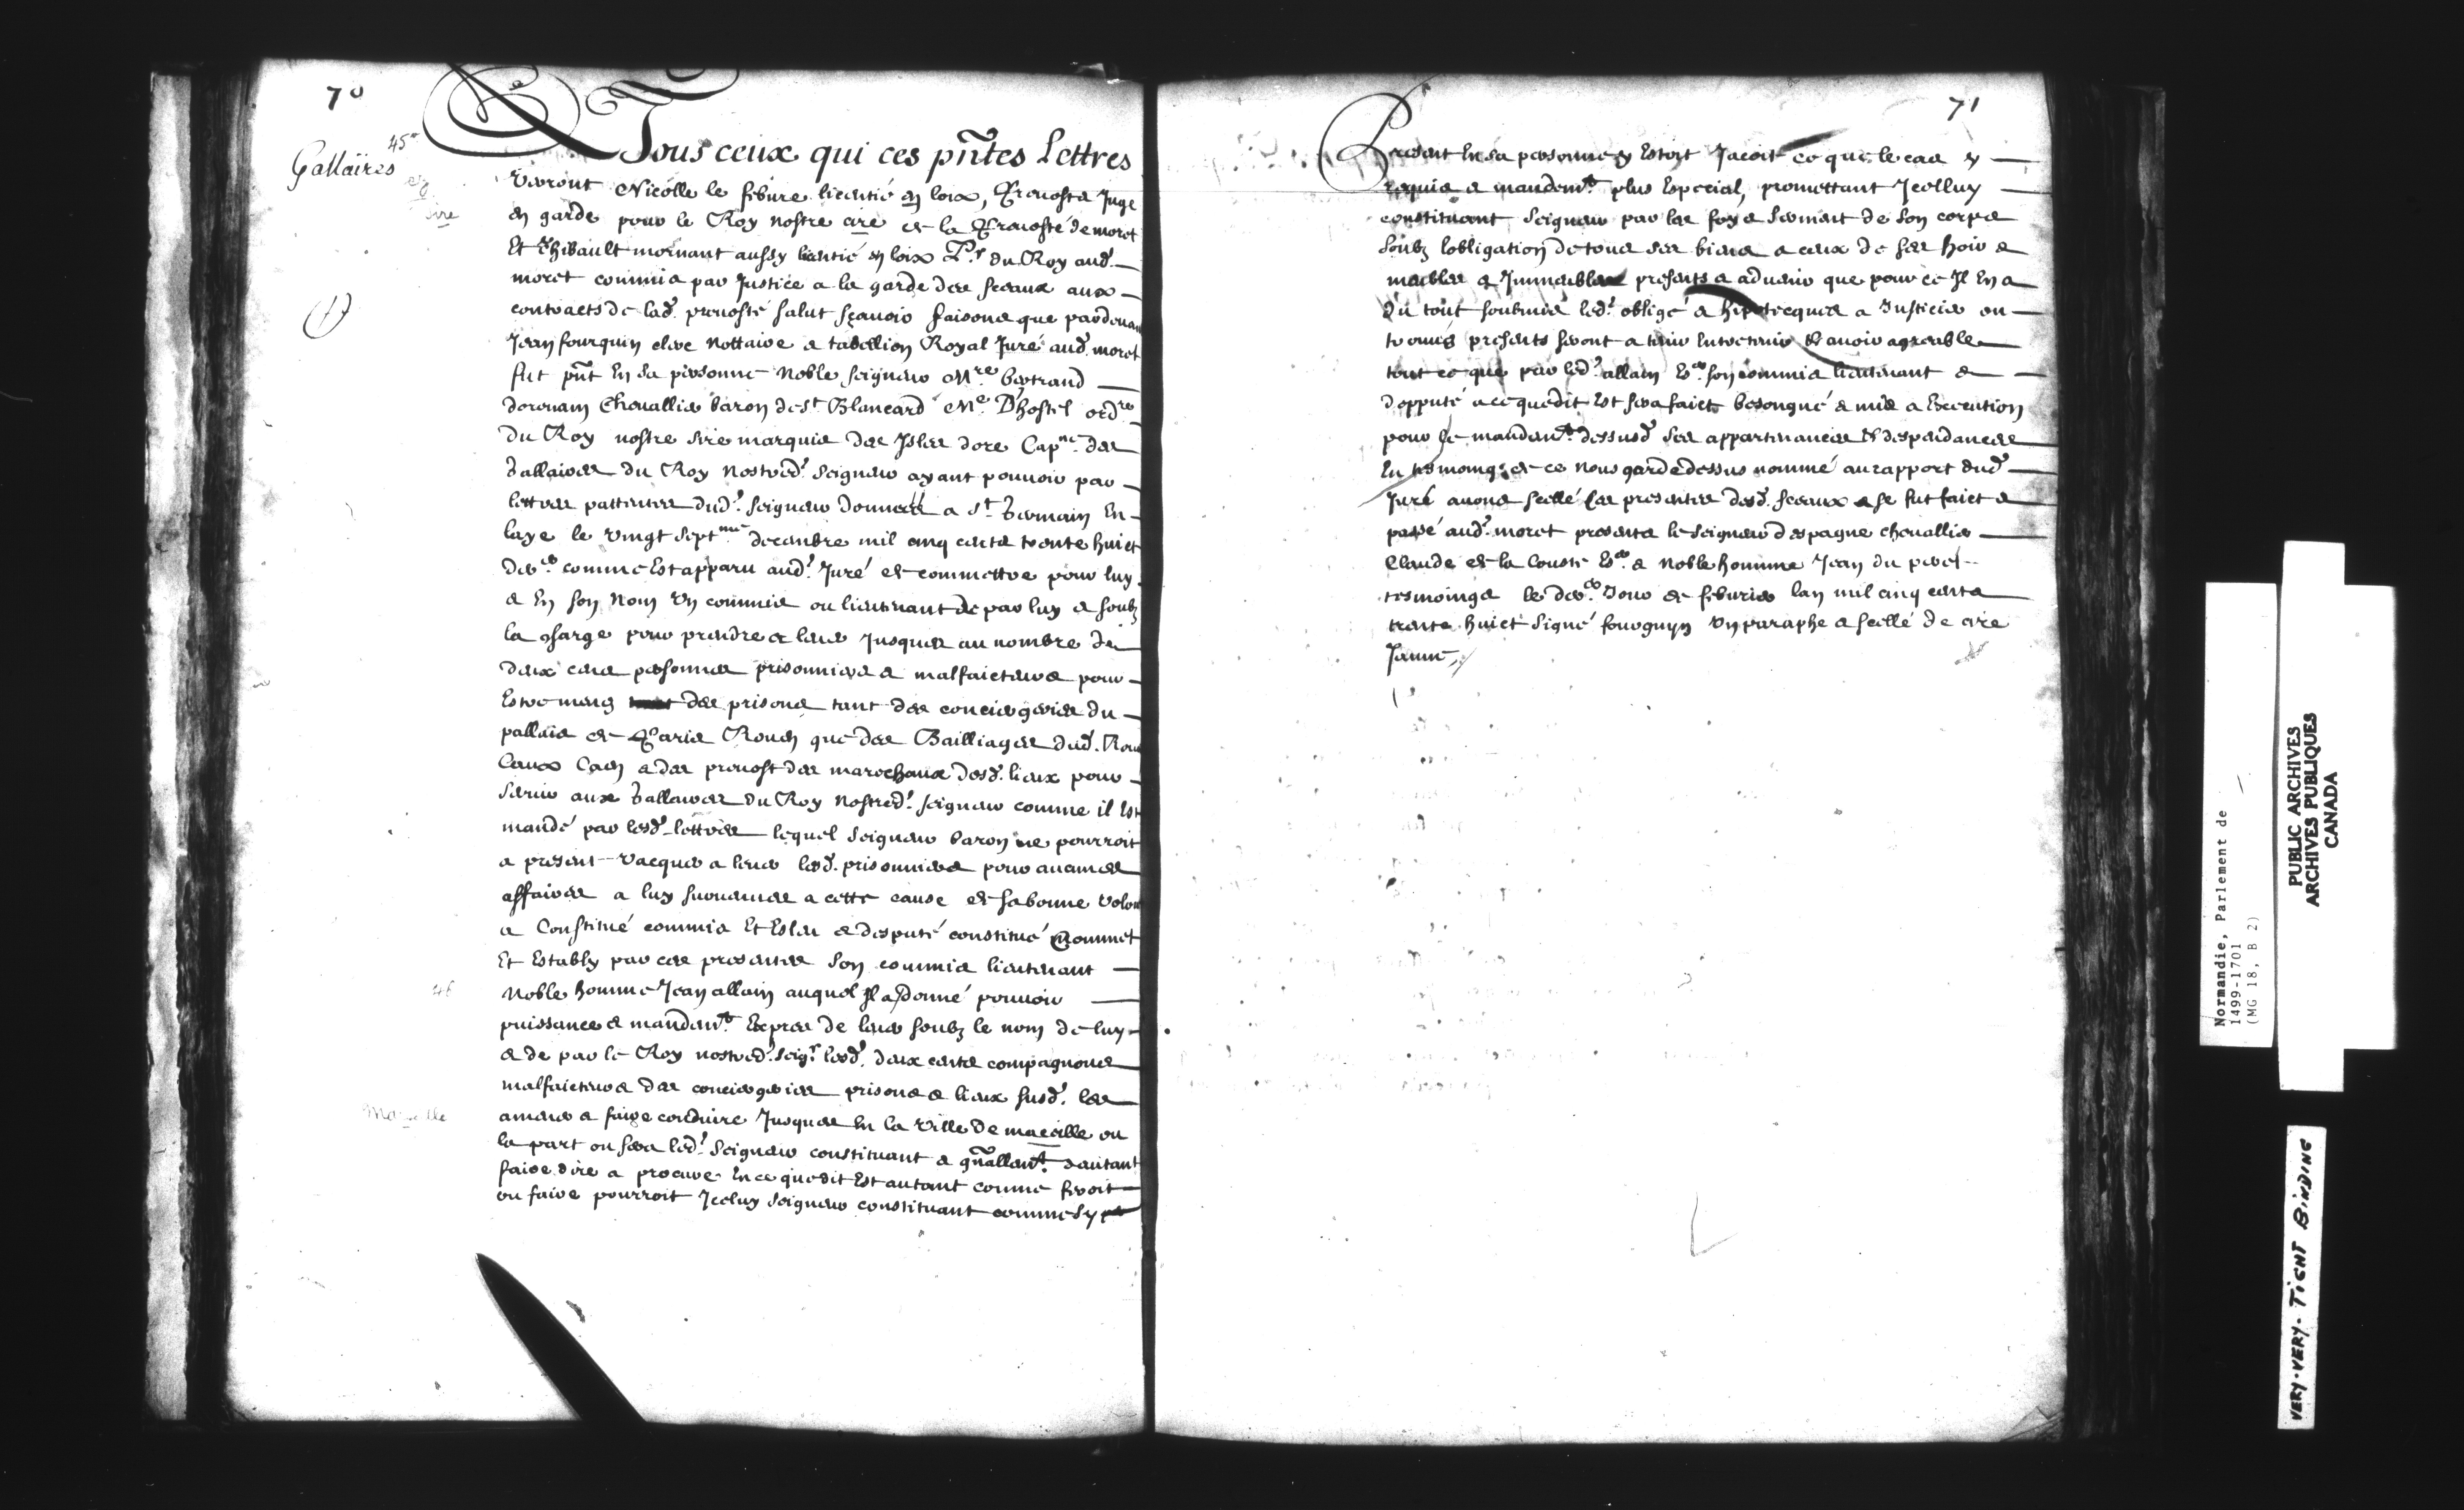 70
45
Gallaires
A Tous ceux qui ces pñtes Lettres
Verront Nicolle le febure licentié en loix, Preuost & Juge
en garde pour le Roy nostre cire de la Preuosté de moret
Et Thibault mornant aussy licentié en loix P.r du Roy aud.
moret commis par Justice a la garde des sceaux aux
contracts de lad. preuosté salut sçauoir faisons que pardeuan
Jean fourquin clerc nottaire & tabellion Royal Juré aud. moret
fut pñt en sa personne Noble seigneur M.re bertrand
dornesan Cheuallier baron de s.t Blancard M.e D'hostel ord.re
du Roy nostre sire marquis des Isles dore Cap.ne des
Gallaires du Roy nostred. seigneur ayant pouuoir par
lettres pattentes dud. seigneur données a s.t Germain En
laye le vingt sept.me decembre mil cinq cents trente huict
der.er comme Est apparu aud. Juré de commettre pour luy
& En son Nom Un commis ou lieutenant de par luy & soubz
la charge pour prendre & leuer Jusques au nombre de
deux cens personnes prisonniers & malfaicteurs pour
Estre menez des prisons tant des conciergeries du
pallais de Paris Rouen que des Bailliages dud. Rou
Caux Caen & des preuost des mareschaux desd. lieux pour
seruir aux Gallaires du Roy nostred. seigneur comme il Est
mandé par lesd. lettres lequel seigneur baron ne pourroit
a present vacquer a leuer lesd. prisonniers pour aucunes
affaires a luy suruenues a cette cause de sa bonne volon
a Constitué commis Et Esleu & desputé constitué commet
Et Estably par ces presentes son commis lieutenant
46
Noble homme Jean allain auquel Il a donné pouuoir
puissance & mandem.t Expres de leuer soubz le nom de luy
& de par le Roy nostred. seig.r lesd. deux cents compagnons
malfaicteurs des conciergeries prisons & lieux susd. les
amener & faire conduire Jusques En la ville de marcille ou
la part ou sera led. seigneur constituant & gñallem.t dautant
faire dire & procurer En ce que dit Est autant comme feroit
ou faire pourroit Jceluy seigneur constituant comme sy
71
Present En sa personne y Estoit Jacoit ce que le cas y
requis & mandem.t plus Especial, promettant Jcelluy
constituant seigneur par les foy & serment de son corps
soubz lobligation de tous ses biens & ceux de ses hoirs
meubles & Jmmeubles presents & aduenir que pour ce Il En a
du tout soubmis led. obligé & hipotecquer a Justicier ou
trouués presents seront a tenir Entretenir & auoir agreable
tout ce que par led. allain Es.er son commis lieutenant &
depputé a ce que dit Est sera faict besongné & mis a Execution
pour le mandem.t dessusd. ses appartenances & despendances
En tesmoing de ce Nous garde dessus nommé au rapport dud.
Juré auons scellé les presentes desd. sceaux & se fut faict &
passé aud. moret presents le seigneur despagne cheuallier
Claude de la Couste Es.er & Noble homme Jean du
tesmoings le der.er Jour de feburier lan mil cinq cents
trente huict signé fourquyn Un paraphe & scellé de cire
Jaune
Normandie, Parlement de
1499-1701
(MG 18, B 2)
PUBLIC ARCHIVES
ARCHIVES PUBLIQUES
CANADA
VERY-VERY-TIGHT BINDING